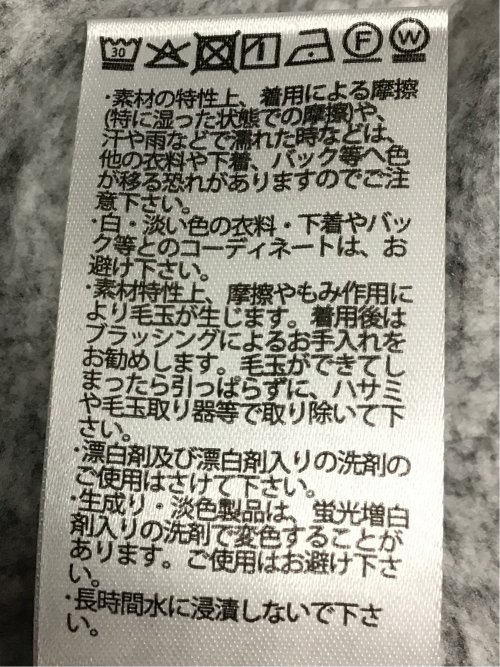 30 F W
・素材の特性上、着用による摩擦
(特に湿った状態での摩擦)や、
汗や雨などで濡れた時などは、
他の衣料や下着、バック等へ色
が移る恐れがありますのでご注
意下さい。
・白・淡い色の衣料・下着やバッ
ク等とのコーディネートは、お
避け下さい。
・素材特性上、摩擦やもみ作用に
より毛玉が生じます。着用後は
ブラッシングによるお手入れを
お勧めします。毛玉ができてし
まったら引っぱらずに、ハサミ
や毛玉取り器等で取り除いて下
さい。
・漂白剤及び漂白剤入りの洗剤の
ご使用はさけて下さい。
・生成り・淡色製品は、蛍光増白
剤入りの洗剤で変色することが
あります。ご使用はお避け下さ
い。
・長時間水に浸漬しないで下さ
い。